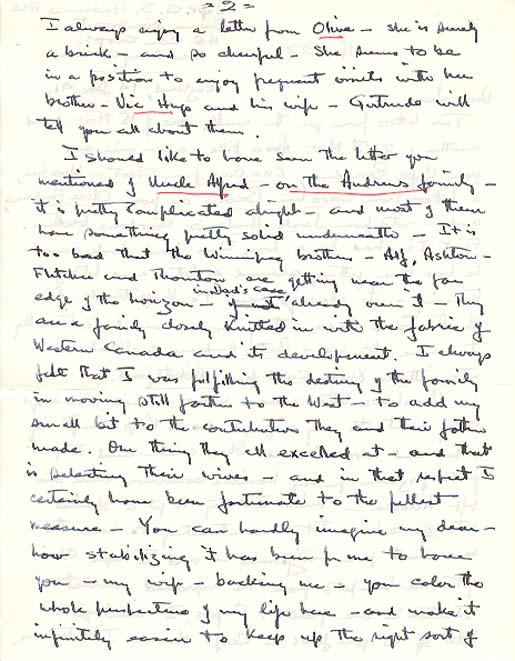 - 2 -
I always enjoy a letter from Olive - she is surely
a brick - and so cheerful - She seems to be
in a position to enjoy frequent visits with her
brother - Vic Hugo and his wife - Gertrude will
tell you all about them.
I should like to have seen the letter you
mentioned of Uncle Alfred - on the Andrews family -
it is pretty complicated alright - and most of them
have something pretty solid underneath - It is
too bad that the Winnipeg brothers - Alf, Ashton -
Fletcher and Thornton are getting near the far
in Dad's case
edge of the horizon - if not already over it - They
are a family closely knitted in with the fabric of
Western Canada and its development. I always
felt that I was fulfilling the destiny of the family
in moving still farther to the West - to add my
small bit to the contribution they and their father
made. One thing they all excelled at - and that
is selecting their wives - and in that respect I
certainly have been fortunate to the fullest
measure - You can hardly imagine my dear -
how stabilizing it has been for me to have
you - my wife - backing me - you color the
whole perspective of my life here - and make it
infinitely easier to keep up the right sort of